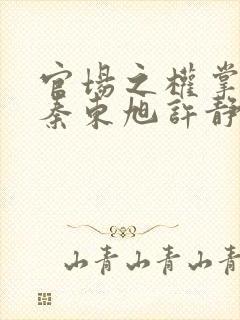 官場之權掌
秦東旭許靜
山青山青山青